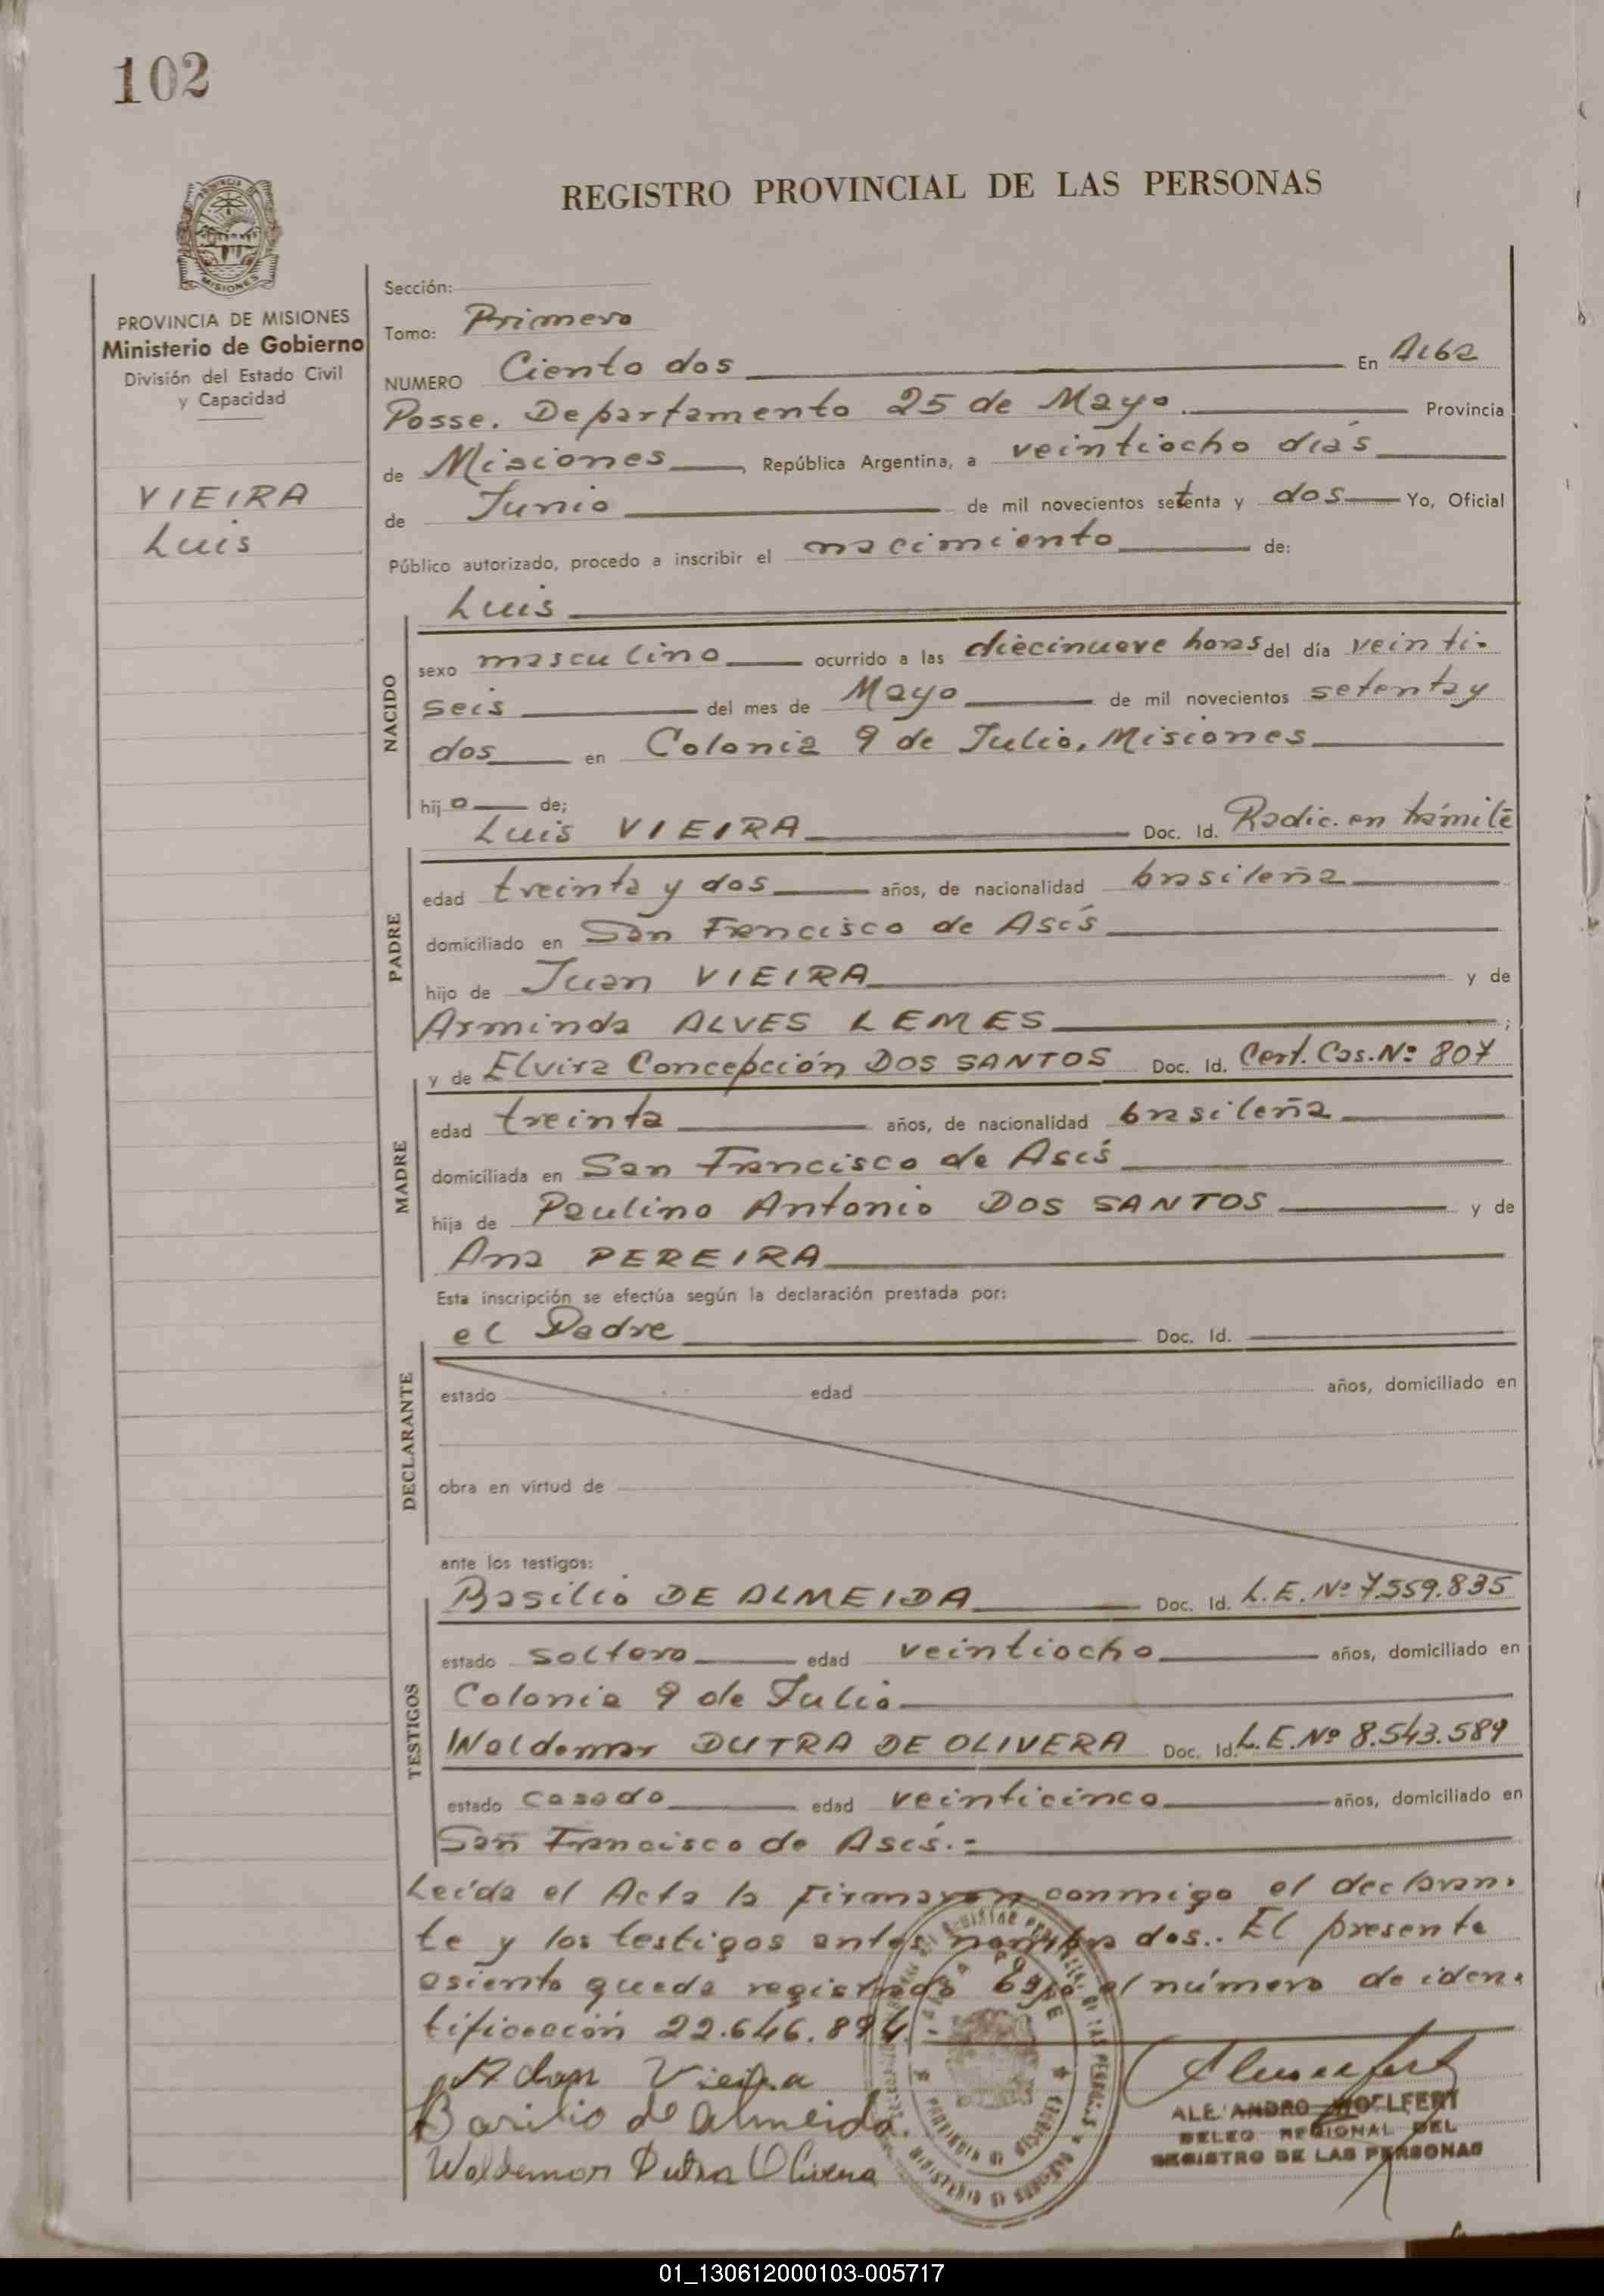 102
REGISTRO PROVINCIAL DE LAS PERSONAS
PROVINCIA DE MISIONES
MISIONES
PROVINCIA DE MISIONES
Ministerio de Gobierno
División del Estado Civil
y Capacidad
VIEIRA
Luis
Sección:
Tomo: Primero
NUMERO Ciento dos En Alba
Posse. Departamento 25 de Mayo. Provincia
de Misiones, República Argentina, a veintiocho días
de Junio de mil novecientos setenta y dos Yo, Oficial
Público autorizado, procedo a inscribir el nacimiento de:
Luis
NACIDO
sexo masculino ocurrido a las diecinueve horas del día veinti-
seis del mes de Mayo de mil novecientos setenta y
dos en Colonia 9 de Julio, Misiones
hijo de;
Luis VIEIRA Doc. Id. Radic. en trámite
PADRE
edad treinta y dos años, de nacionalidad brasileña
domiciliado en San Francisco de Asís
hijo de Juan VIEIRA y de
Arminda ALVES LEMES ;
y de Elvira Concepción DOS SANTOS Doc. Id. Cert. Cas. Nº 807
MADRE
edad treinta años, de nacionalidad brasileña
domiciliada en San Francisco de Asís
hija de Paulino Antonio DOS SANTOS y de
Ana PEREIRA
Esta inscripción se efectúa según la declaración prestada por:
el Padre Doc. Id.
DECLARANTE
estado edad años, domiciliado en
obra en virtud de
ante los testigos:
Basilio DE ALMEIDA Doc. Id. L.E. Nº 7.559.835
TESTIGOS
estado soltero edad veintiocho años, domiciliado en
Colonia 9 de Julio
Waldemar DUTRA DE OLIVERA Doc. Id. L.E. Nº 8.543.589
estado casado edad veinticinco años, domiciliado en
San Francisco de Asís.-
Leída el Acta la firmaron conmigo el declaran-
te y los testigos antes nombrados.. El presente
asiento queda registrado bajo el número de iden-
tificación 22.646.894
Adan Vieira
Basilio de almeida.
Waldemar Dutra Olivera
ALEJANDRO WOELFERT
DELEG. REGIONAL DEL
REGISTRO DE LAS PERSONAS
01_130612000103-005717